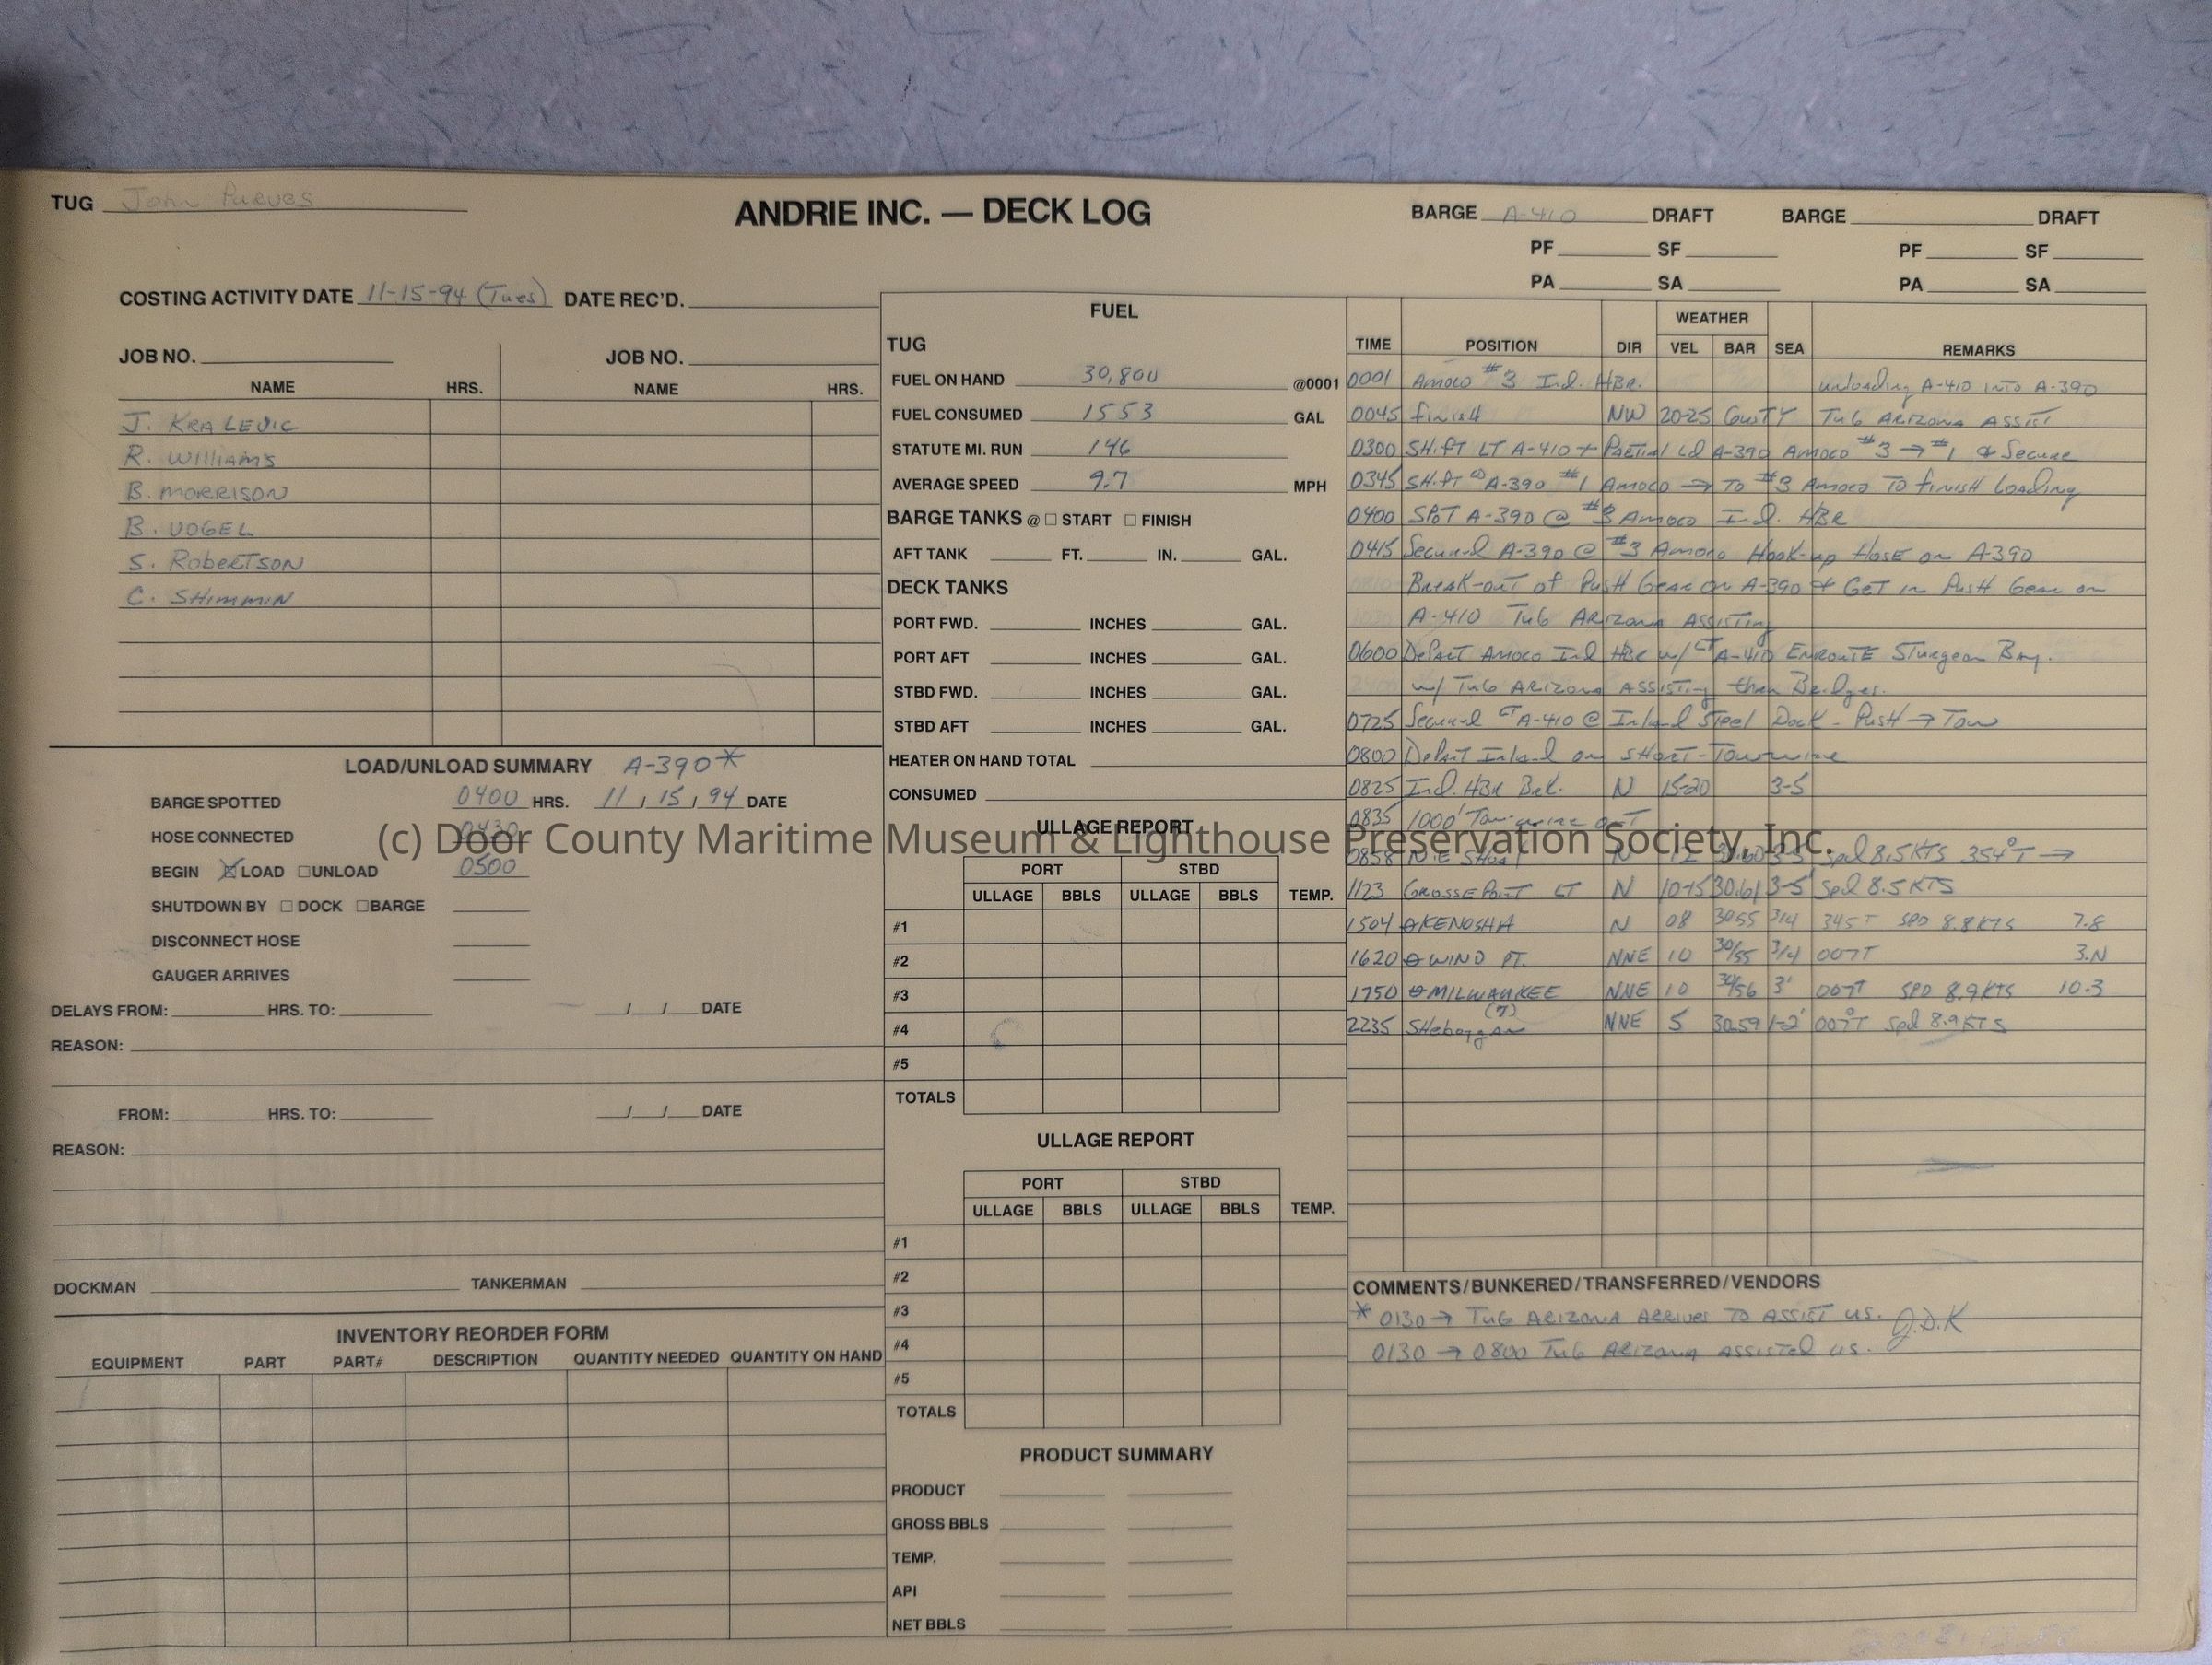 TUG John Purves
ANDRIE INC. — DECK LOG
BARGE A-410 DRAFT BARGE DRAFT
PF SF PF SF
PA SA PA SA
COSTING ACTIVITY DATE 11-15-94 (Tues) DATE REC'D.
JOB NO. JOB NO.
NAME HRS. NAME HRS.
J. KRALEVIC
R. WILLIAMS
B. MORRISON
B. VOGEL
S. RobERTSON
C. SHIMMIN
LOAD/UNLOAD SUMMARY A-390*
BARGE SPOTTED 0400 HRS. 11/15/94 DATE
HOSE CONNECTED 0430
BEGIN ☒LOAD ☐UNLOAD 0500
SHUTDOWN BY ☐ DOCK ☐BARGE
DISCONNECT HOSE
GAUGER ARRIVES
DELAYS FROM: HRS. TO: / / DATE
REASON:
FROM: HRS. TO: / / DATE
REASON:
DOCKMAN TANKERMAN
INVENTORY REORDER FORM
EQUIPMENT PART PART# DESCRIPTION QUANTITY NEEDED QUANTITY ON HAND
FUEL
TUG
FUEL ON HAND 30,800 @0001
FUEL CONSUMED 1553 GAL
STATUTE MI. RUN 146
AVERAGE SPEED 9.7 MPH
BARGE TANKS @ ☐ START ☐ FINISH
AFT TANK FT. IN. GAL.
DECK TANKS
PORT FWD. INCHES GAL.
PORT AFT INCHES GAL.
STBD FWD. INCHES GAL.
STBD AFT INCHES GAL.
HEATER ON HAND TOTAL
CONSUMED
ULLAGE REPORT
PORT STBD
ULLAGE BBLS ULLAGE BBLS TEMP.
#1
#2
#3
#4
#5
TOTALS
ULLAGE REPORT
PORT STBD
ULLAGE BBLS ULLAGE BBLS TEMP.
#1
#2
#3
#4
#5
TOTALS
PRODUCT SUMMARY
PRODUCT
GROSS BBLS
TEMP.
API
NET BBLS
WEATHER
TIME POSITION DIR VEL BAR SEA REMARKS
0001 Amoco #3 Ind. HBR. unloading A-410 INTO A-390
0045 finish NW 20-25 GusTY Tug ARIZONA ASSIST
0300 SHift LT A-410 + Partial Ld A-390 Amoco #3 → #1 & Secure
0345 SHift A-390 #1 Amoco → To #3 Amoco To finish Loading
0400 SPOT A-390 @ #3 Amoco Ind. HBR
0415 Secured A-390 @ #3 Amoco Hook-up HosE on A-390
Break-out of PusH Gear on A-390 & GET in PusH Gear on
A-410 Tug ARIZONA ASSISTing
0600 DePart Amoco Ind HBR w/ LT A-410 ENROUTE Sturgeon Bay.
w/ Tug ARIZONA ASSISTing thru Bridges.
0725 Secured LT A-410 @ Inland Steel Dock - PusH → Tow
0800 Depart Inland on SHORT-Towwire
0825 Ind. HBR Brk. N 15-20 3-5
0835 1000' Tow-wire out
0858 N.E SHoal N 12 30.60 3-5' spd 8.5KTS 354°T →
1123 GROSSE POINT LT N 10-15 30.61 3-5' Spd 8.5KTS
1504 ⊖KENOSHA N 08 3055 3/4 345T SPD 8.8KTS 7.8
1620 ⊖ WIND PT. NNE 10 30/55 3/4 007T 3.N
1750 ⊖MILWAUKEE NNE 10 30/56 3' 007T SPD 8.9KTS 10.3
2235 SHeboygan (7) NNE 5 30.59 1-2' 007°T Spd 8.9KTS
COMMENTS/BUNKERED/TRANSFERRED/VENDORS
* 0130 → Tug ARIZONA ARRIVES TO ASSIST us. J.D.K
0130 → 0800 Tug ARIZONA ASSISTED us.
(c) Door County Maritime Museum & Lighthouse Preservation Society, Inc.